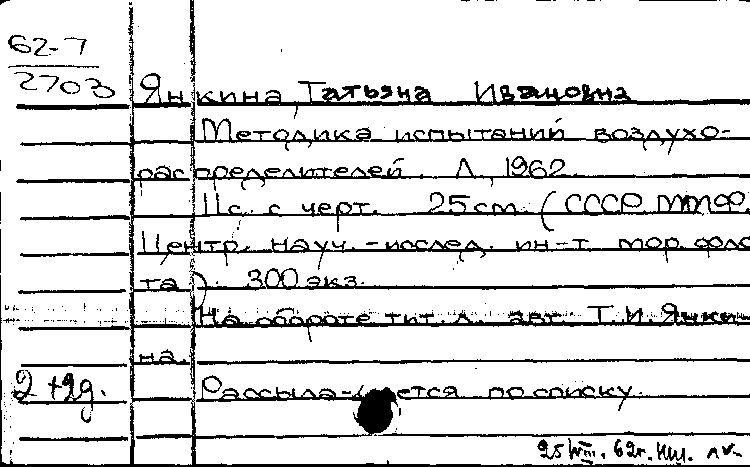 62-7
2703
Янкина, Татьяна Ивановна
Методика испытаний воздухо-
распределителей. Л., 1962.
11 с. с черт. 25 см. (СССР. ММФ.
Центр. науч.-исслед. ин-т мор. фло
та). 300 экз.
На обороте тит. л. авт. Т.И. Янки-
на.
2 + 2д. Рассылается по списку.
25/VIII. 62г.